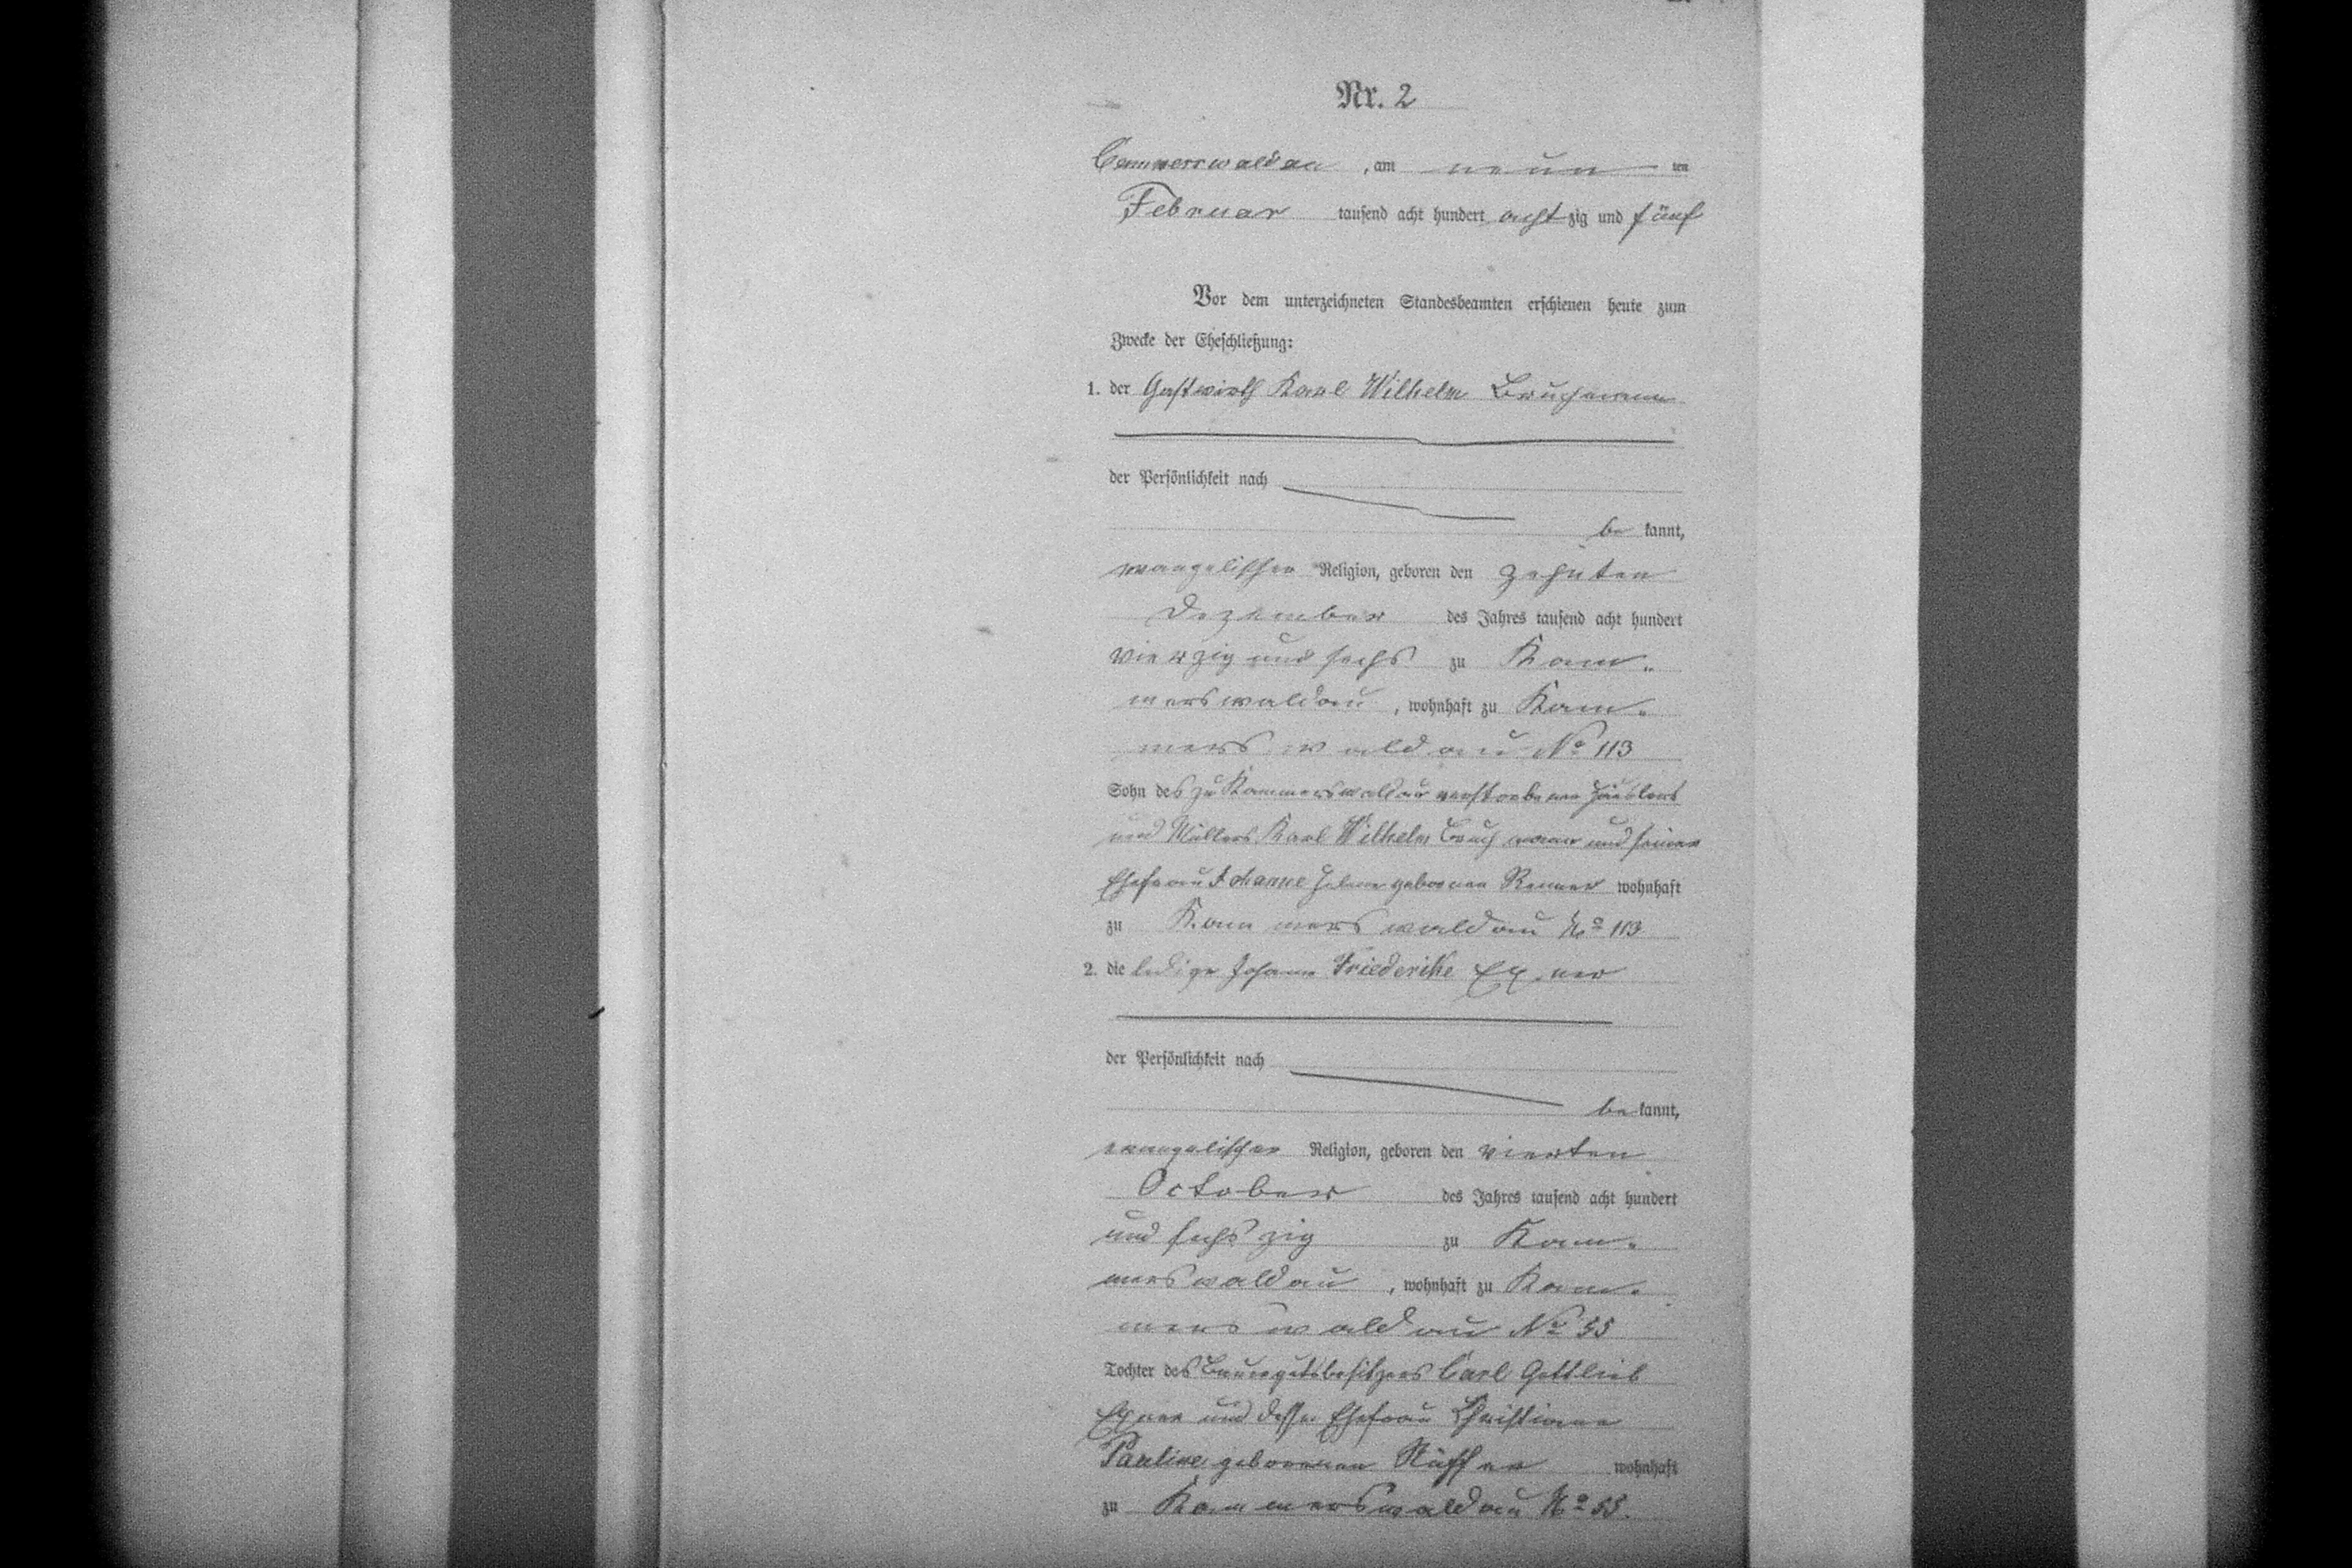 Nr. 2
Cammerswaldau, am neun ten
Februar tausend acht hundert achtzig und fünf
Vor dem unterzeichneten Standesbeamten erschienen heute zum
Zwecke der Eheschließung:
1. der Gastwirth Karl Wilhelm Bruchmann
der Persönlichkeit nach
be kannt,
evangelischer Religion, geboren den zehnten
Dezember des Jahres tausend acht hundert
vierzig und sechs zu Kam-
merswaldau, wohnhaft zu Kam-
merswaldau No 113
Sohn des zu Kammerswaldau verstorbenen Häuslers
und Müllers Karl Wilhelm Bruchmann und seiner
Ehefrau Johanne Helene geborenen Renner wohnhaft
zu Kammerswaldau No 113
2. die ledige Johanne Friederike Exner
der Persönlichkeit nach
be kannt,
evangelischer Religion, geboren den vierten
October des Jahres tausend acht hundert
und sechszig zu Kam-
merswaldau, wohnhaft zu Kam-
merswaldau No 55
Tochter des Bauergutsbesitzers Carl Gottlieb
Exner und dessen Ehefrau Christiane
Pauline geborenen wohnhaft
zu Kammerswaldau No 55.